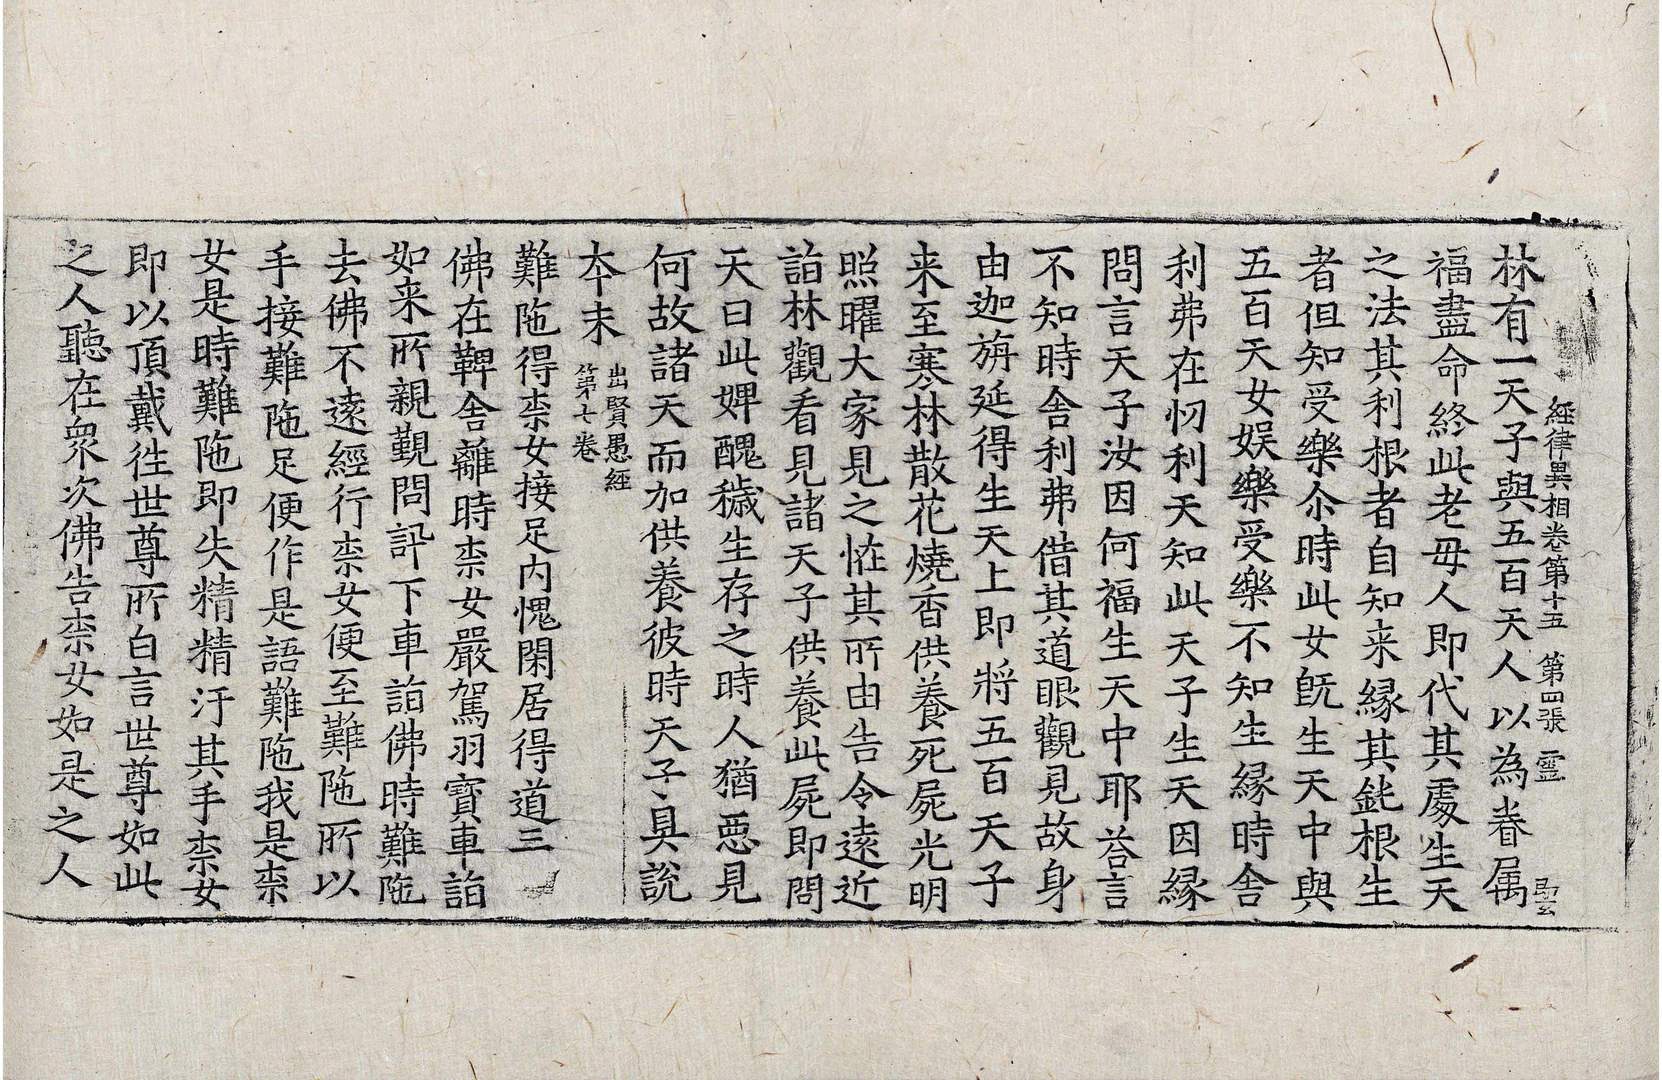 經律異相卷第十五 第四張 霊
林有一天子與五百天人以為眷属
福盡命終此老母人即代其處生天
之法其利根者自知来縁其鈍根生
者但知受樂尒時此女旣生天中與
五百天女娱樂受樂不知生縁時舎
利弗在忉利天知此天子生天因縁
問言天子汝因何福生天中耶荅言
不知時舎利弗借其道眼觀見故身
由迦旃延得生天上即將五百天子
来至寒林散花燒香供養死屍光明
照曜大家見之恠其所由告令逺近
詣林觀看見諸天子供養此屍即問
天曰此婢醜穢生存之時人猶惡見
何故諸天而加供養彼時天子具說
夲末
出賢愚經
第七卷
難陁得柰女接足内愧閑居得道三
佛在鞞舎離時柰女嚴駕羽寶車詣
如来所親覲問訊下車詣佛時難陁
去佛不逺經行柰女便至難陁所以
手接難陁足便作是語難陁我是柰
女是時難陁即失精精汙其手柰女
即以頂戴徃世尊所白言世尊如此
之人聽在衆次佛告柰女如是之人